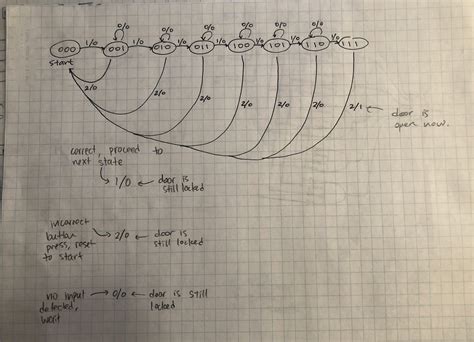 0/0 0/0 0/0 0/0 0/0 0/0
000 1/0 001 1/0 010 1/0 011 1/0 100 1/0 101 1/0 110 1/0 111
start
2/0 2/0 2/0 2/0 2/0 2/0 2/1 ← door is
open now.
correct, proceed to
next state
→ 1/0 ← door is
still locked
incorrect
button → 2/0 ← door is
press, reset still locked
to start
no input → 0/0 ← door is still
detected, locked
wait